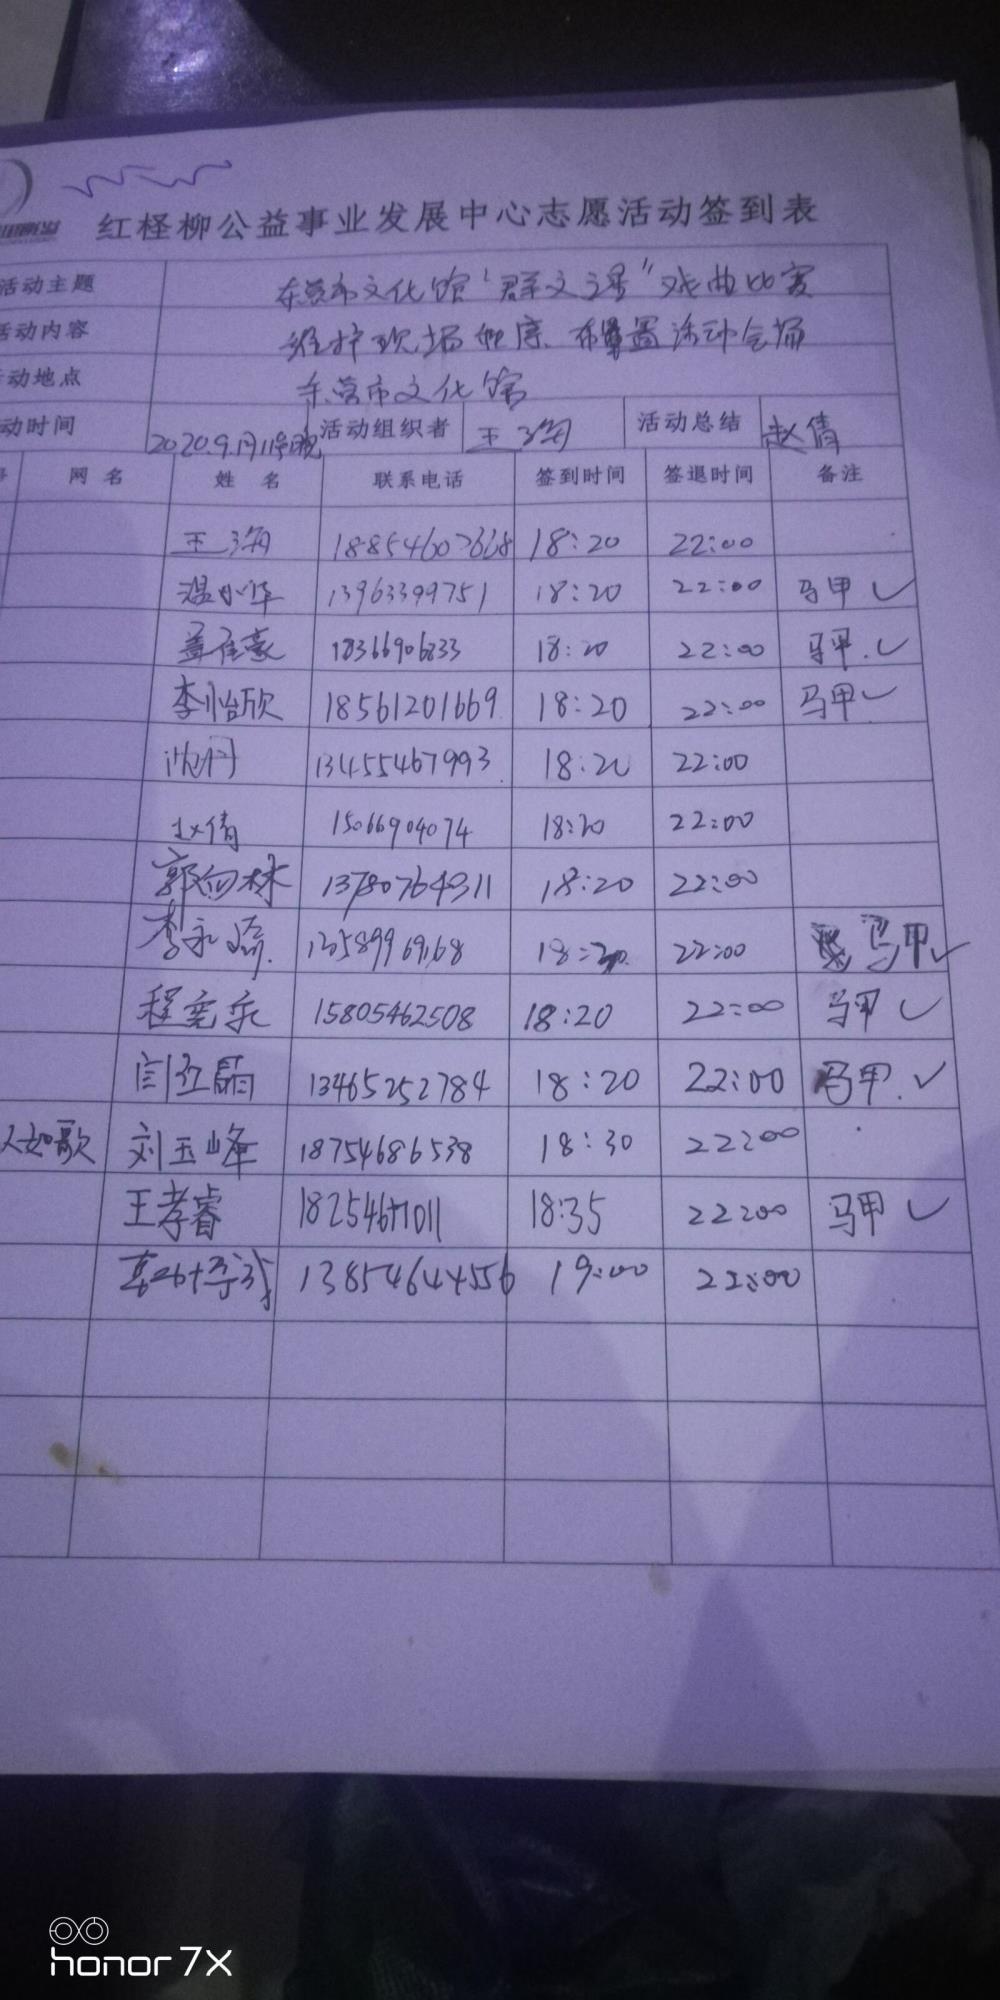 红柽柳公益事业发展中心志愿活动签到表
活动主题 东营市文化馆“群文之星”戏曲比赛
活动内容 维护现场秩序、布置活动会场
动地点 东营市文化馆
动时间 2020.9.月11号晚 活动组织者 王海 活动总结 赵倩
号 网名 姓名 联系电话 签到时间 签退时间 备注
王海 18854607668 18:20 22:00
温小华 13963399751 18:20 22:00 马甲 ✓
18366906833 18:20 22:00 马甲. ✓
李怡欣 18561201669 18:20 22:00 马甲 ✓
沈丹 13455467993 18:20 22:00
赵倩 15066904074 18:20 22:00
郭向林 13780764311 18:20 22:00
李永 18:20 22:00 马甲 ✓
程 15805462508 18:20 22:00 马甲 ✓
闫红晶 13465252784 18:20 22:00 马甲. ✓
人如歌 刘玉峰 18754686538 18:30 22:00
王孝睿 18:35 22:00 马甲 ✓
13854644556 19:00 22:00
honor 7X